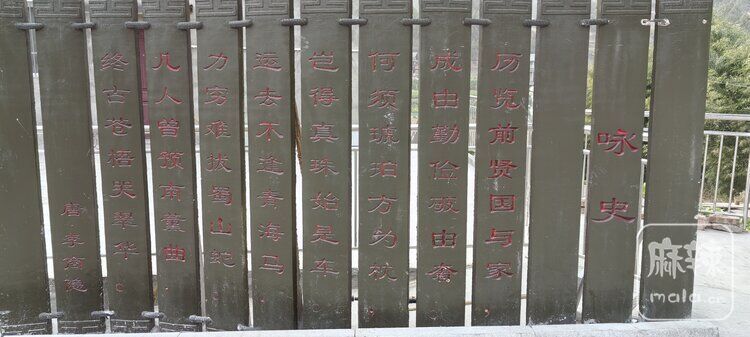 咏史
历览前贤国与家
成由勤俭破由奢
何须琥珀方为枕
岂得真珠始是车
运去不逢青海马
力穷难拔蜀山蛇。
几人曾预南薰曲
终古苍梧哭翠华。
唐·李商隐
麻辣
mala.cn